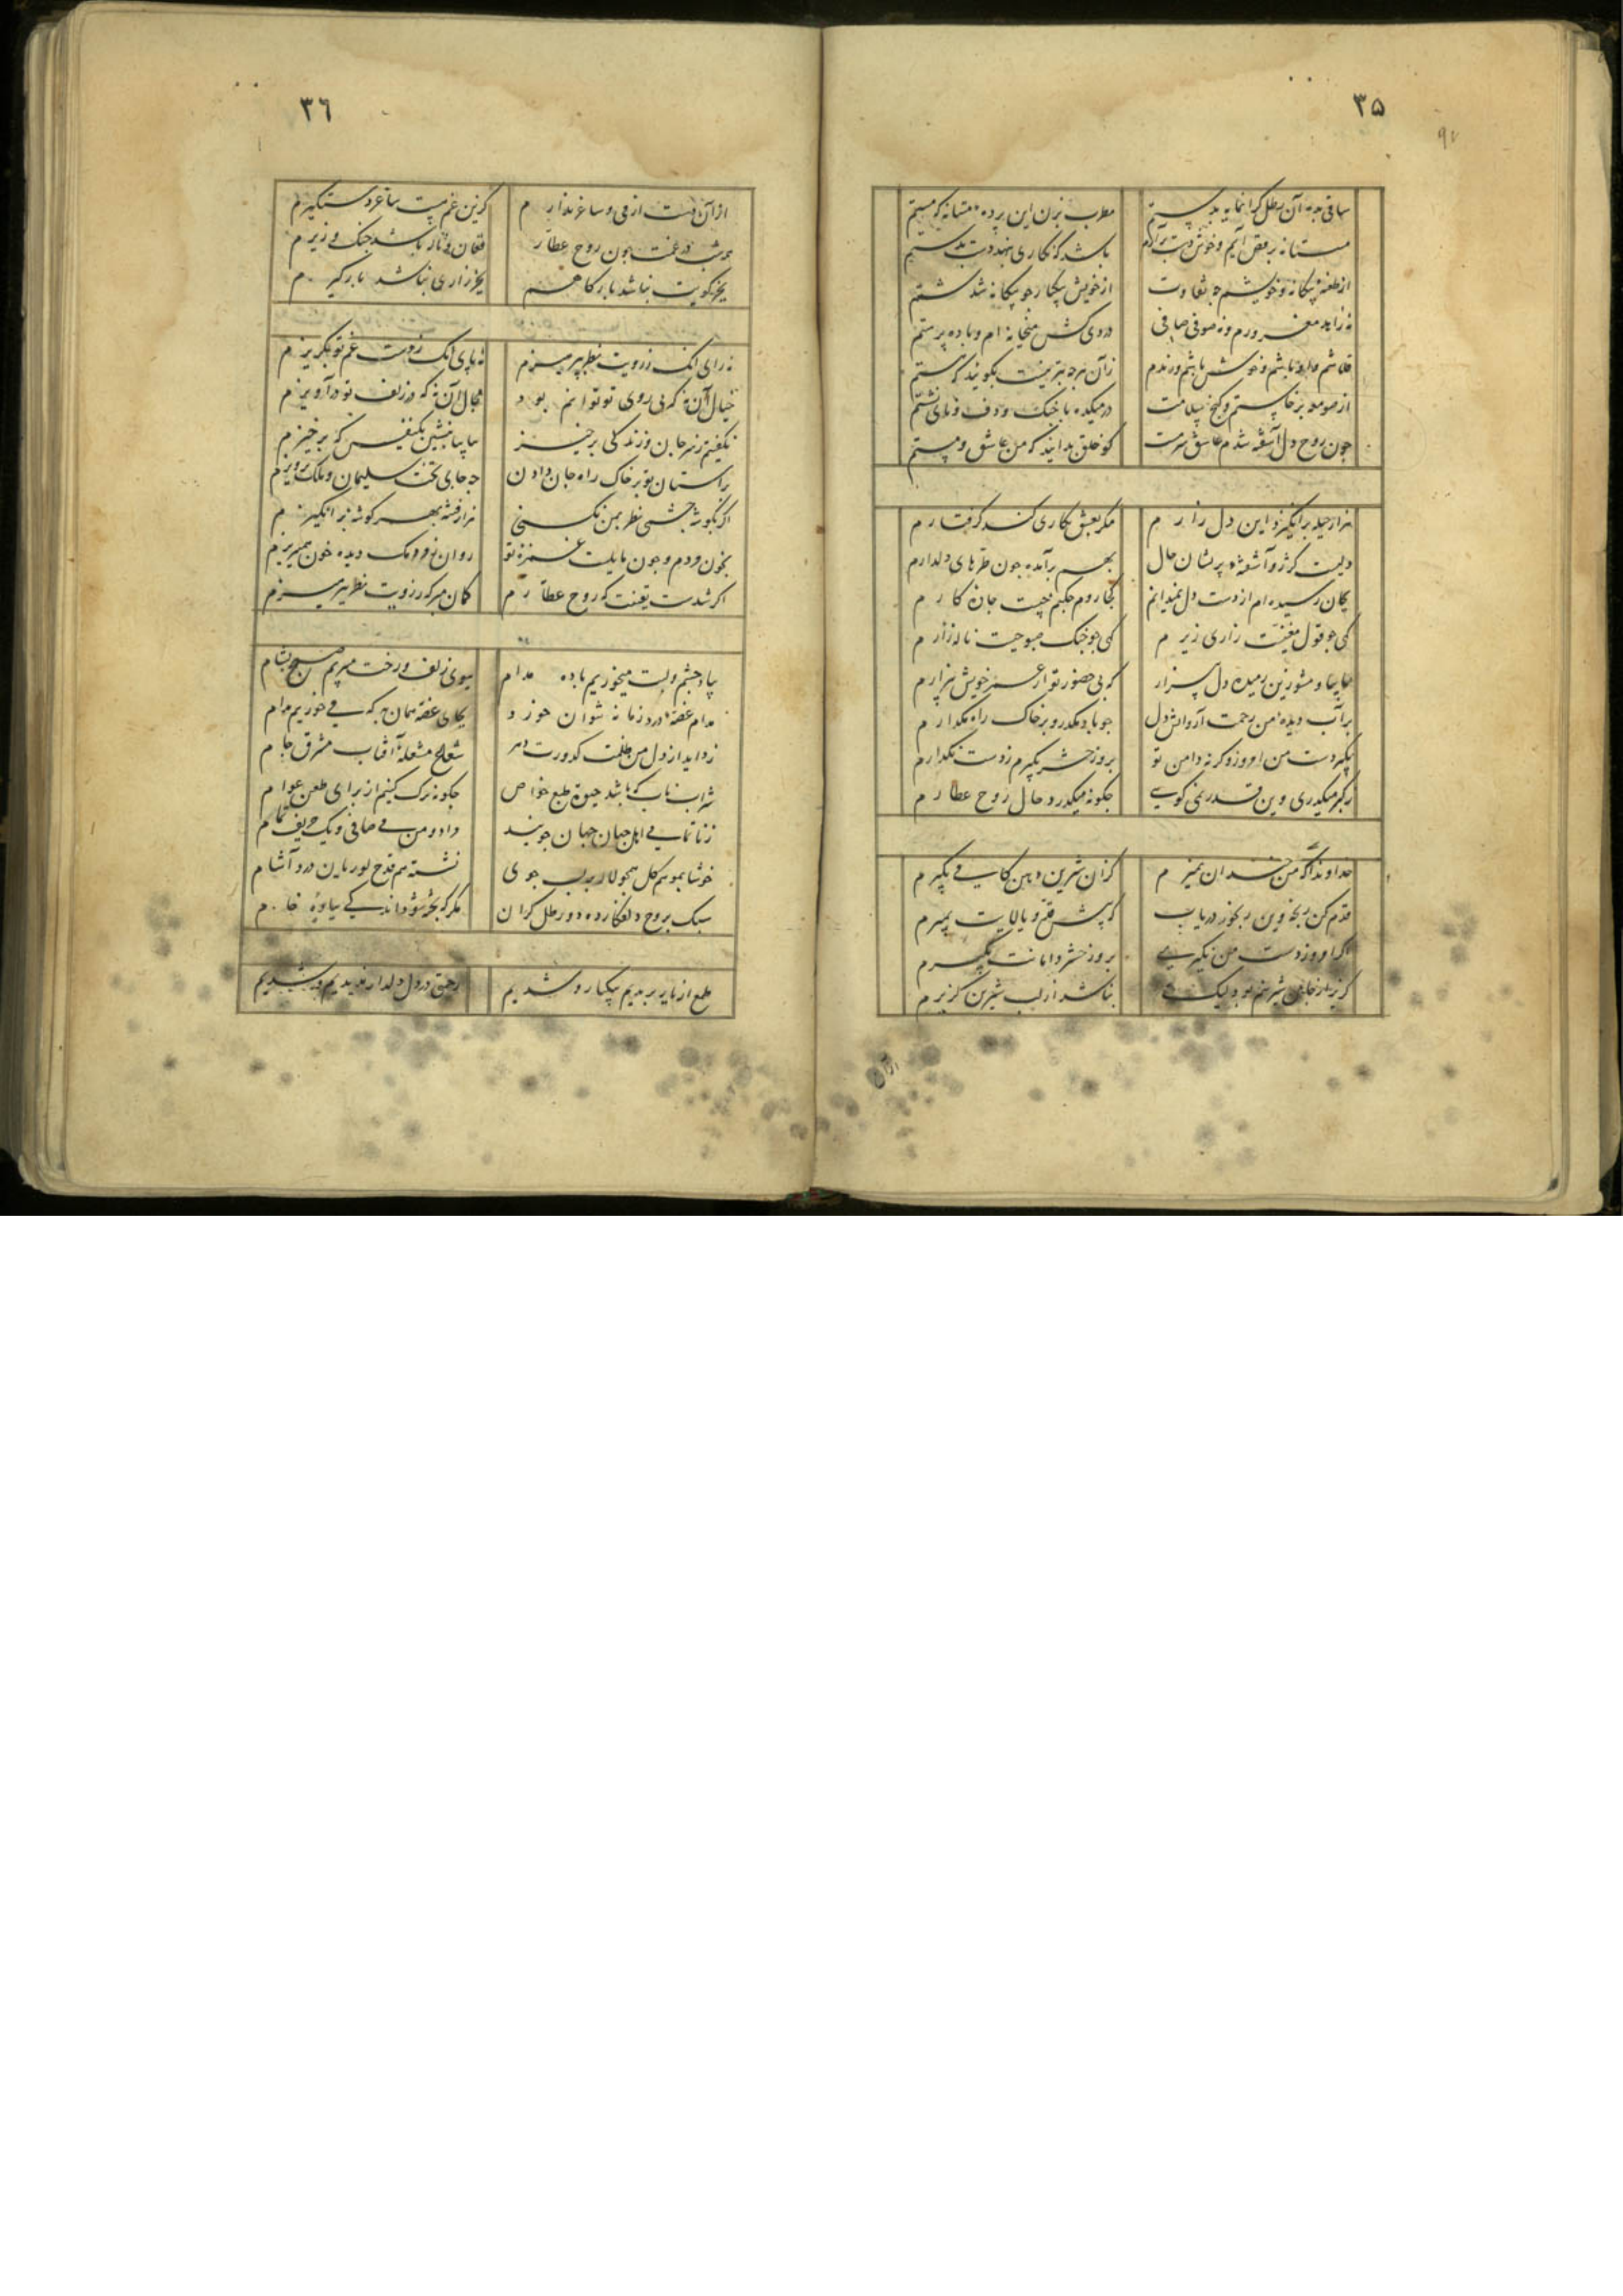 ۳۵
ساقی بده آن رطل گرانمایه بدستم
مطرب بزن این پرده مستانه که مستم
مستانه برقص آیم و خوش دست برآرم
باشد که نکاری بنهد دست بدستم
از طعنه بیکانه و خویشم چه تفاوت
از خویش بیکبار چو بیکانه شدستم
نه زاهد مغرورم و نه صوفی صافی
دردی کش میخانه ام و باده پرستم
قلاشم و
زان هرچه بتر نیست بکویند که هستم
از صومعه برخاستم و کنج سلامت
در میکده با چنک و دف و نای نشستم
چون روح دل آشفته شدم عاشق سرمست
کو خلق بدانند که من عاشق و مستم
هزار حیله برانکیزد این دل زارم
مکر بعشق نکاری کند کرفتارم
دلیست کژرو آشفته پریشان حال
بهم برآمده چون طره های دلدارم
بجان رسیده ام از دست دل نمیدانم
کجا روم چکنم چیست چاره کارم
کهی چو قول مغنیست زاری زیرم
کهی چو چنک صبوحیست ناله زارم
بیا بیا و مشو زین رمیده دل بیزار
که بی حضور تو از عمر خویش بیزارم
بر آب دیده من رحمت آر و آتش دل
چو باد مکذر و بر خاک راه مکذارم
بکیر دست من امروز و کرنه دامن تو
بروز حشر بکیرم ز دست نکذارم
بکبر میکذری وین قدر نمی کویی
چکونه میکذرد حال روح عطارم
خداوندا کر من چندان نمیرم
کزان شیرین دهن کامی بکیرم
قدم کن رنجه وین رنجور دریاب
که پیش قد و بالایت بمیرم
اکر امروز دست من نکیری
بروز حشر دامانت بکیرم
کزیر از جان شیرینم بود لیک
نباشد از لب شیرین کزیرم
۳۶
از آن دست از می و ساغر ندارم
کزین غم نیست ساغر دستکیرم
همه شب در غمت چون روح عطار
فغان و ناله باشد چنک و زیرم
بجز کویت نباشد بارکاهم
بجز زاری نباشد بارکیرم
نه رای انک ز رویت نظر بپرهیزم
نه پای انک ز دست غم تو بکریزم
خیال آن نه که بی روی تو توانم بود
مجال آن نه که در زلف تو درآویزم
نکفتیم ز سر جان و زندکی برخیز
بیا بیا بنشین یکنفس که برخیزم
بر آستان تو بر خاک راه جان دادن
به جای تخت سلیمان و ملک پرویزم
اکر بکوشه چشمی نظر بمن نکنی
هزار فتنه بهر کوشه برانکیزم
بخون مردم چون مایلست غمزه تو
روان ز مردمک دیده خون همیریزم
اکر شدت یقینت که روح عطارم
کمان مبر که ز رویت نظر بپرهیزم
بیاد چشم و لبت میخوریم باده مدام
ببوی زلف و رخت میبریم صبح بشام
مدام غصه دور زمانه نتوان خورد
بجای غصه همان به که می خوریم مدام
زداید از دل من ظلمت کدورت دهر
شعاع مشعله آفتاب مشرق جام
شراب ناب که باشد حیوة طبع خواص
چکونه ترک کنیم از برای طعن عوام
ز ناتمامی اهل جهان جهان جویند
مراد و من می صافی و یک حریف تمام
خوشا بموسم کل همچو لاله بر لب جوی
نشسته هم قدح لولیان درد آشام
سبک بروح دلفکار ده دو رطل کران
مکر که پخته شود اندکی بباده خام
طمع از یار بریدیم بیکبار و شدیم
رحمتی در دل دلدار ندیدیم و شدیم